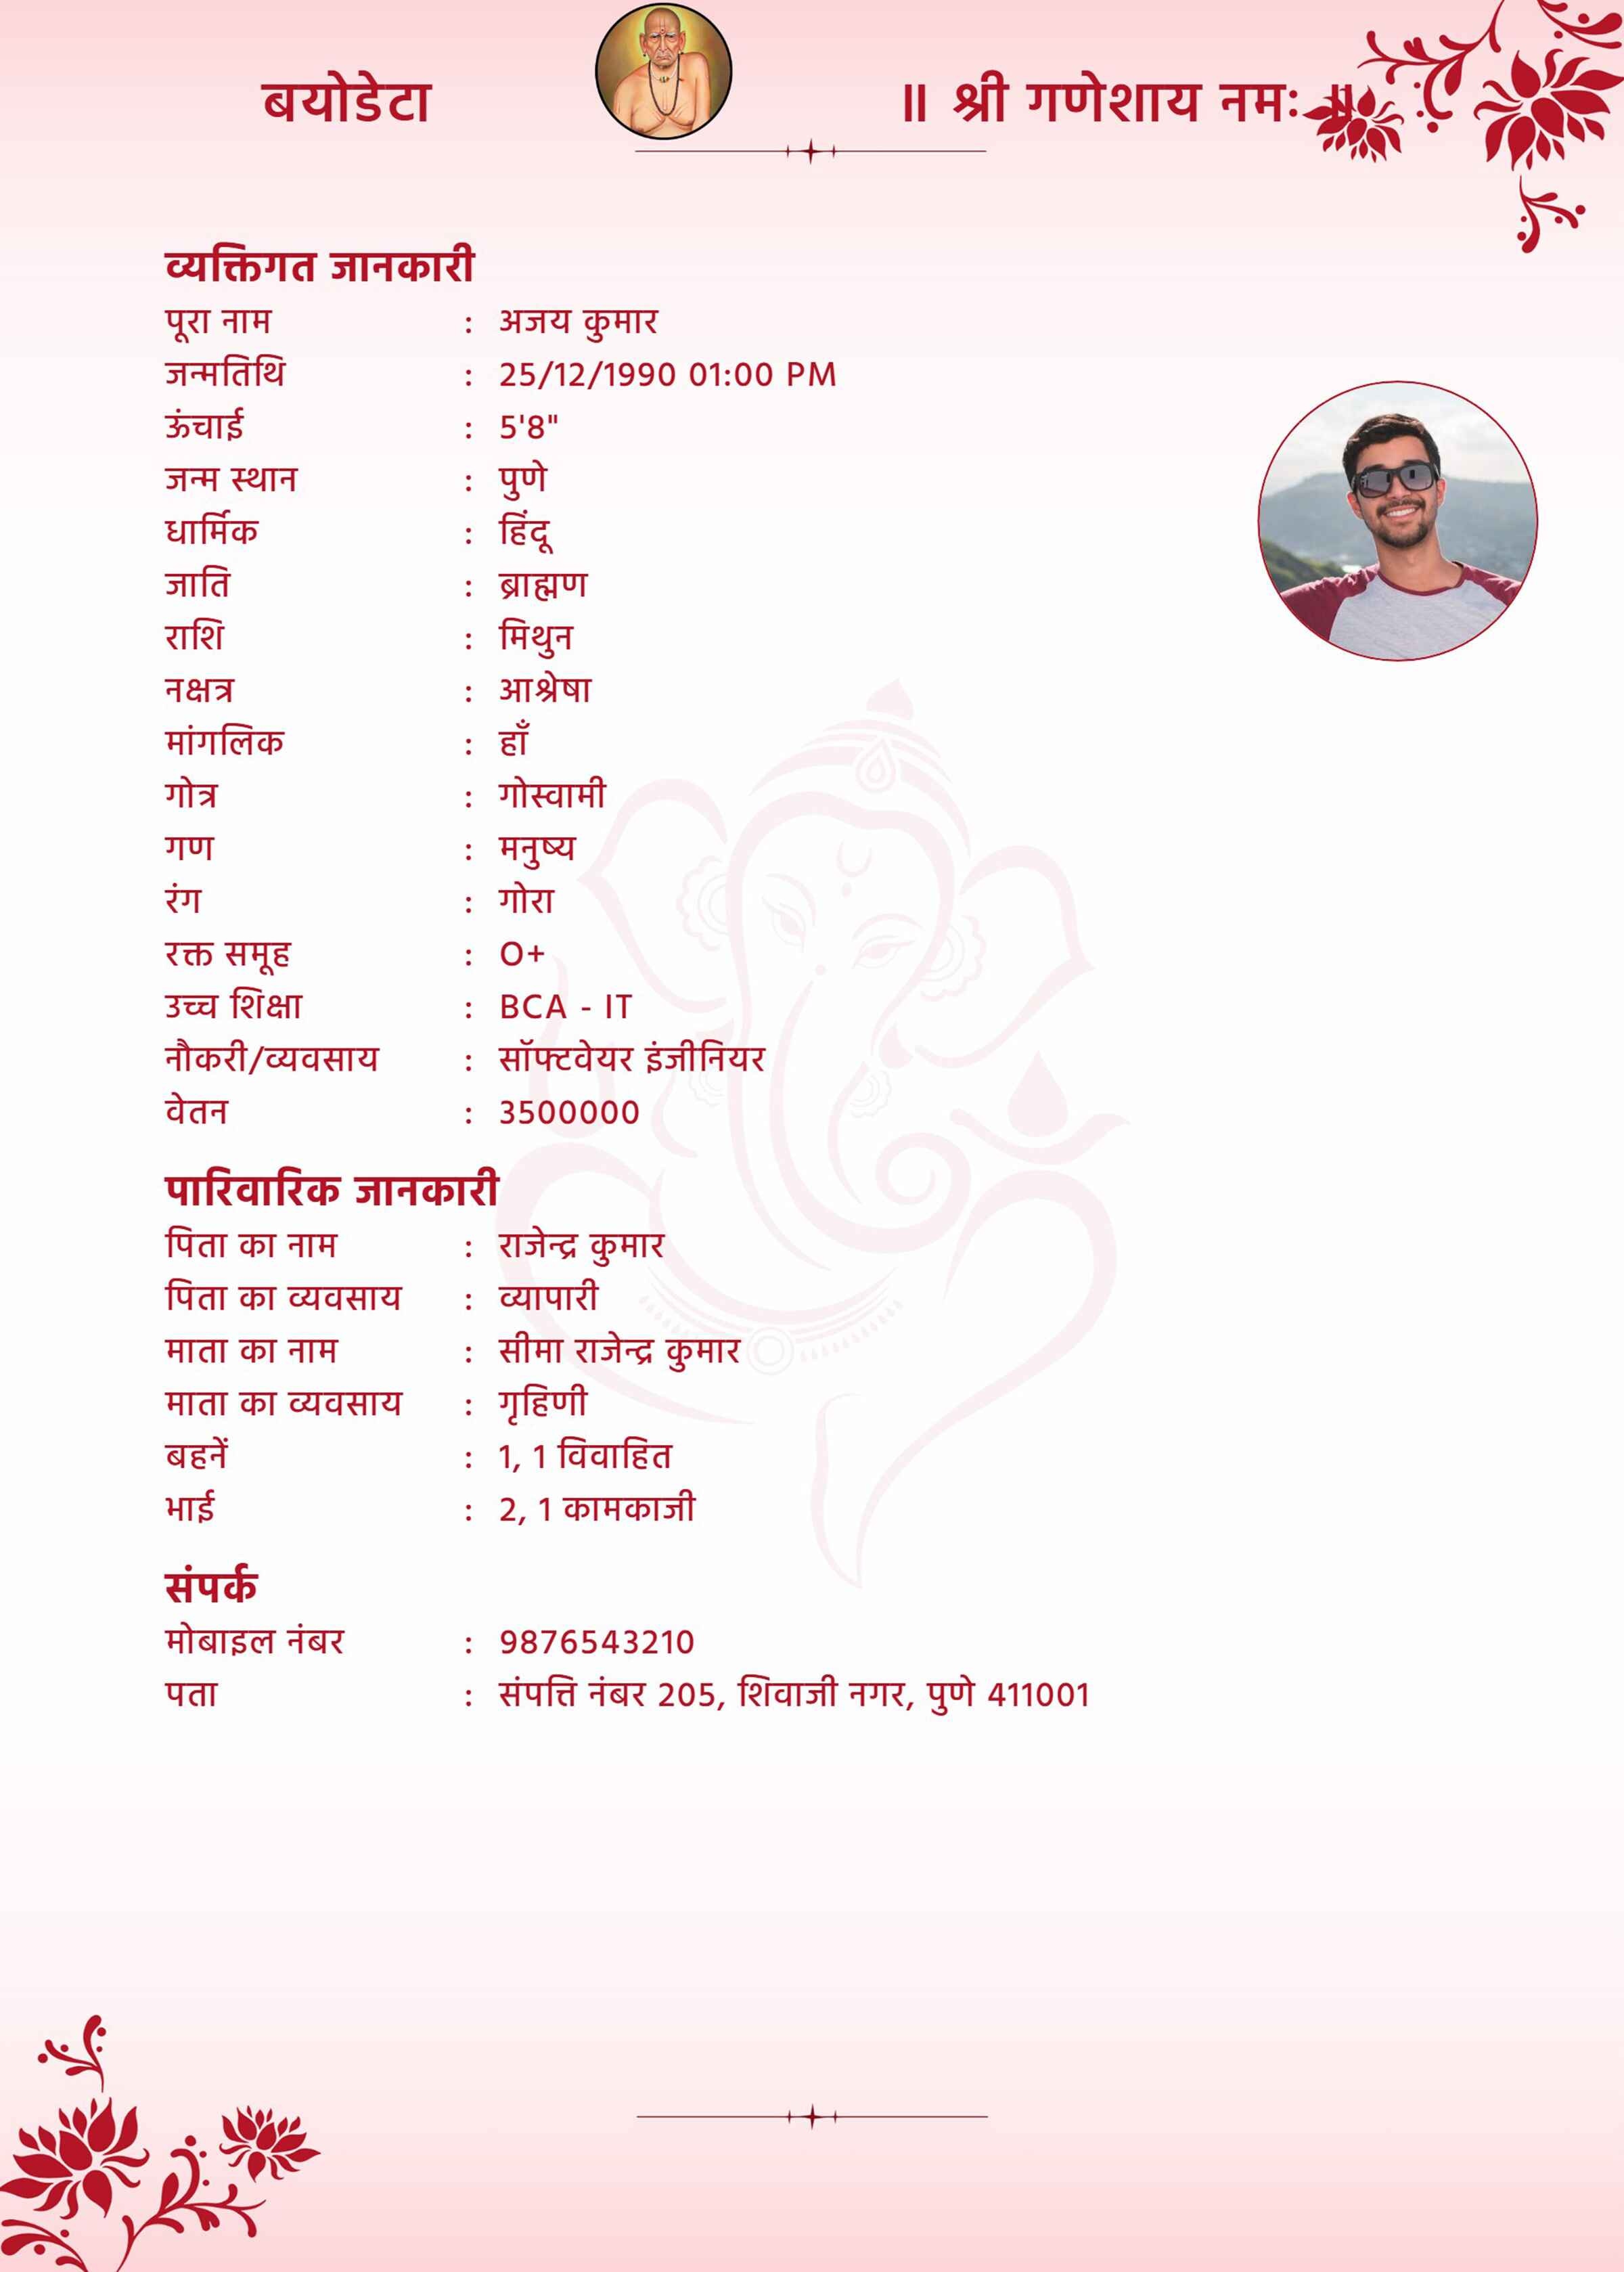 बयोडेटा
॥ श्री गणेशाय नमः ॥
व्यक्तिगत जानकारी
पूरा नाम : अजय कुमार
जन्मतिथि : 25/12/1990 01:00 PM
ऊंचाई : 5'8"
जन्म स्थान : पुणे
धार्मिक : हिंदू
जाति : ब्राह्मण
राशि : मिथुन
नक्षत्र : आश्रेषा
मांगलिक : हाँ
गोत्र : गोस्वामी
गण : मनुष्य
रंग : गोरा
रक्त समूह : O+
उच्च शिक्षा : BCA - IT
नौकरी/व्यवसाय : सॉफ्टवेयर इंजीनियर
वेतन : 3500000
पारिवारिक जानकारी
पिता का नाम : राजेन्द्र कुमार
पिता का व्यवसाय : व्यापारी
माता का नाम : सीमा राजेन्द्र कुमार
माता का व्यवसाय : गृहिणी
बहनें : 1, 1 विवाहित
भाई : 2, 1 कामकाजी
संपर्क
मोबाइल नंबर : 9876543210
पता : संपत्ति नंबर 205, शिवाजी नगर, पुणे 411001